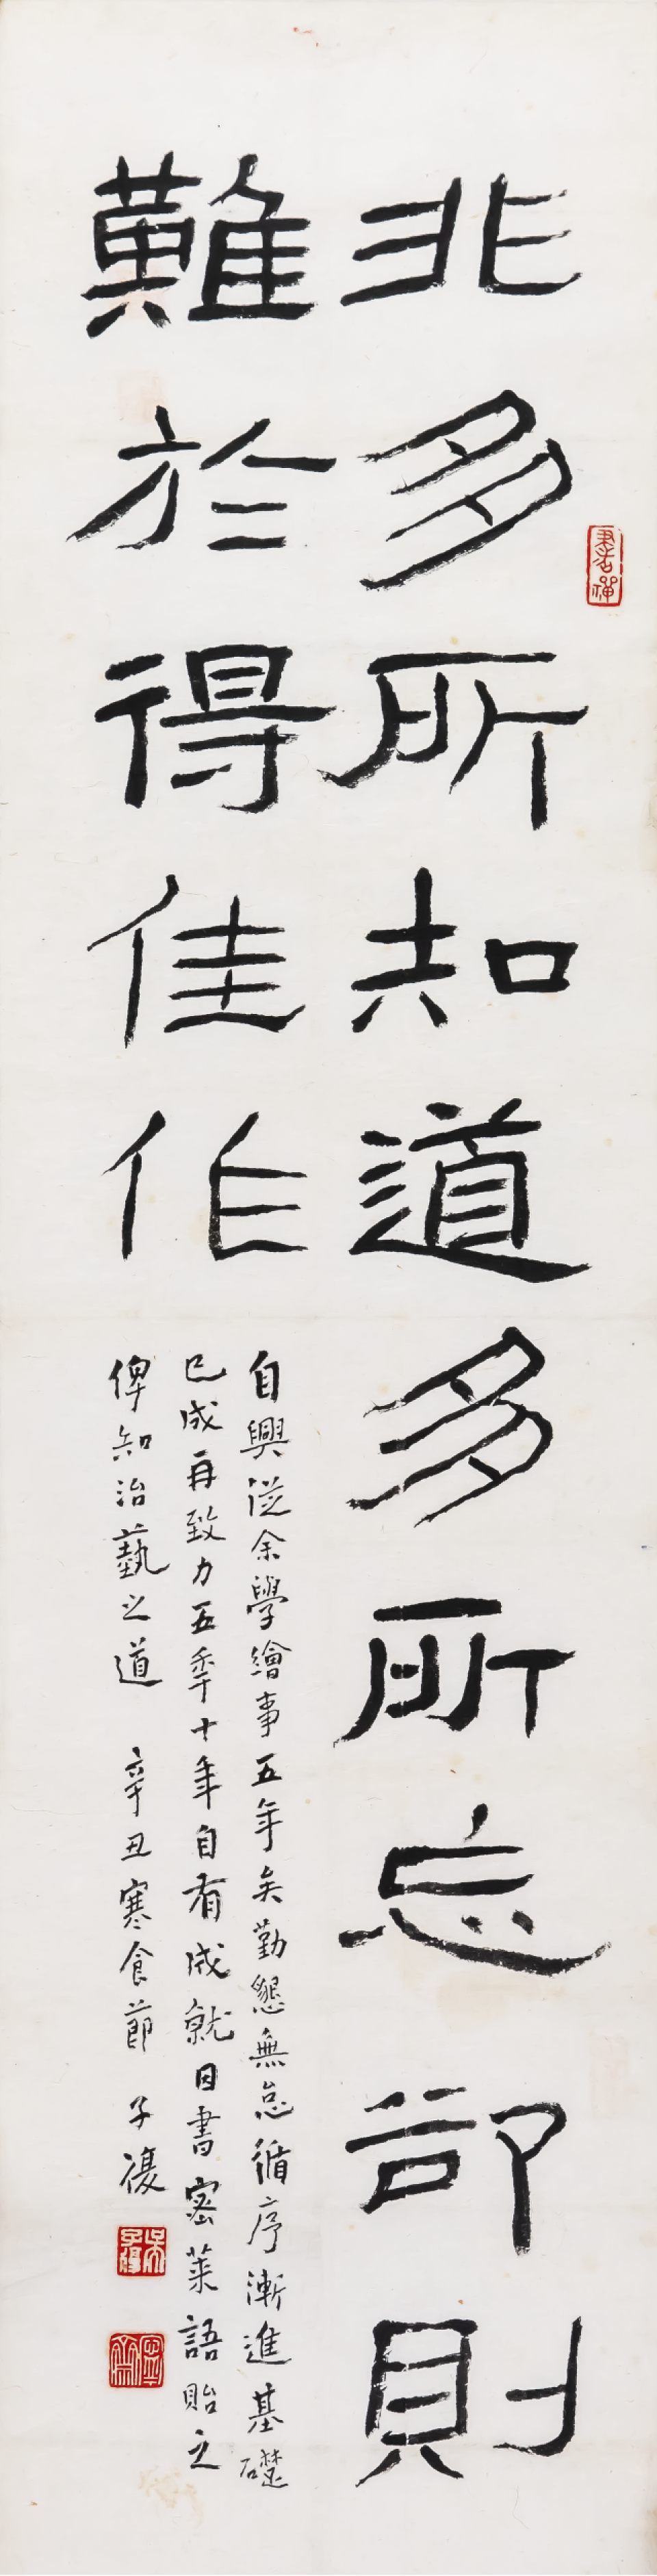 非多所知道多所忘卻則
難於得佳作
自興從余學繪事五年矣勤懇無怠循序漸進基礎
已成再致力五季十年自有成就因書密萊語貽之
俾知治藝之道 辛丑寒食節 子復